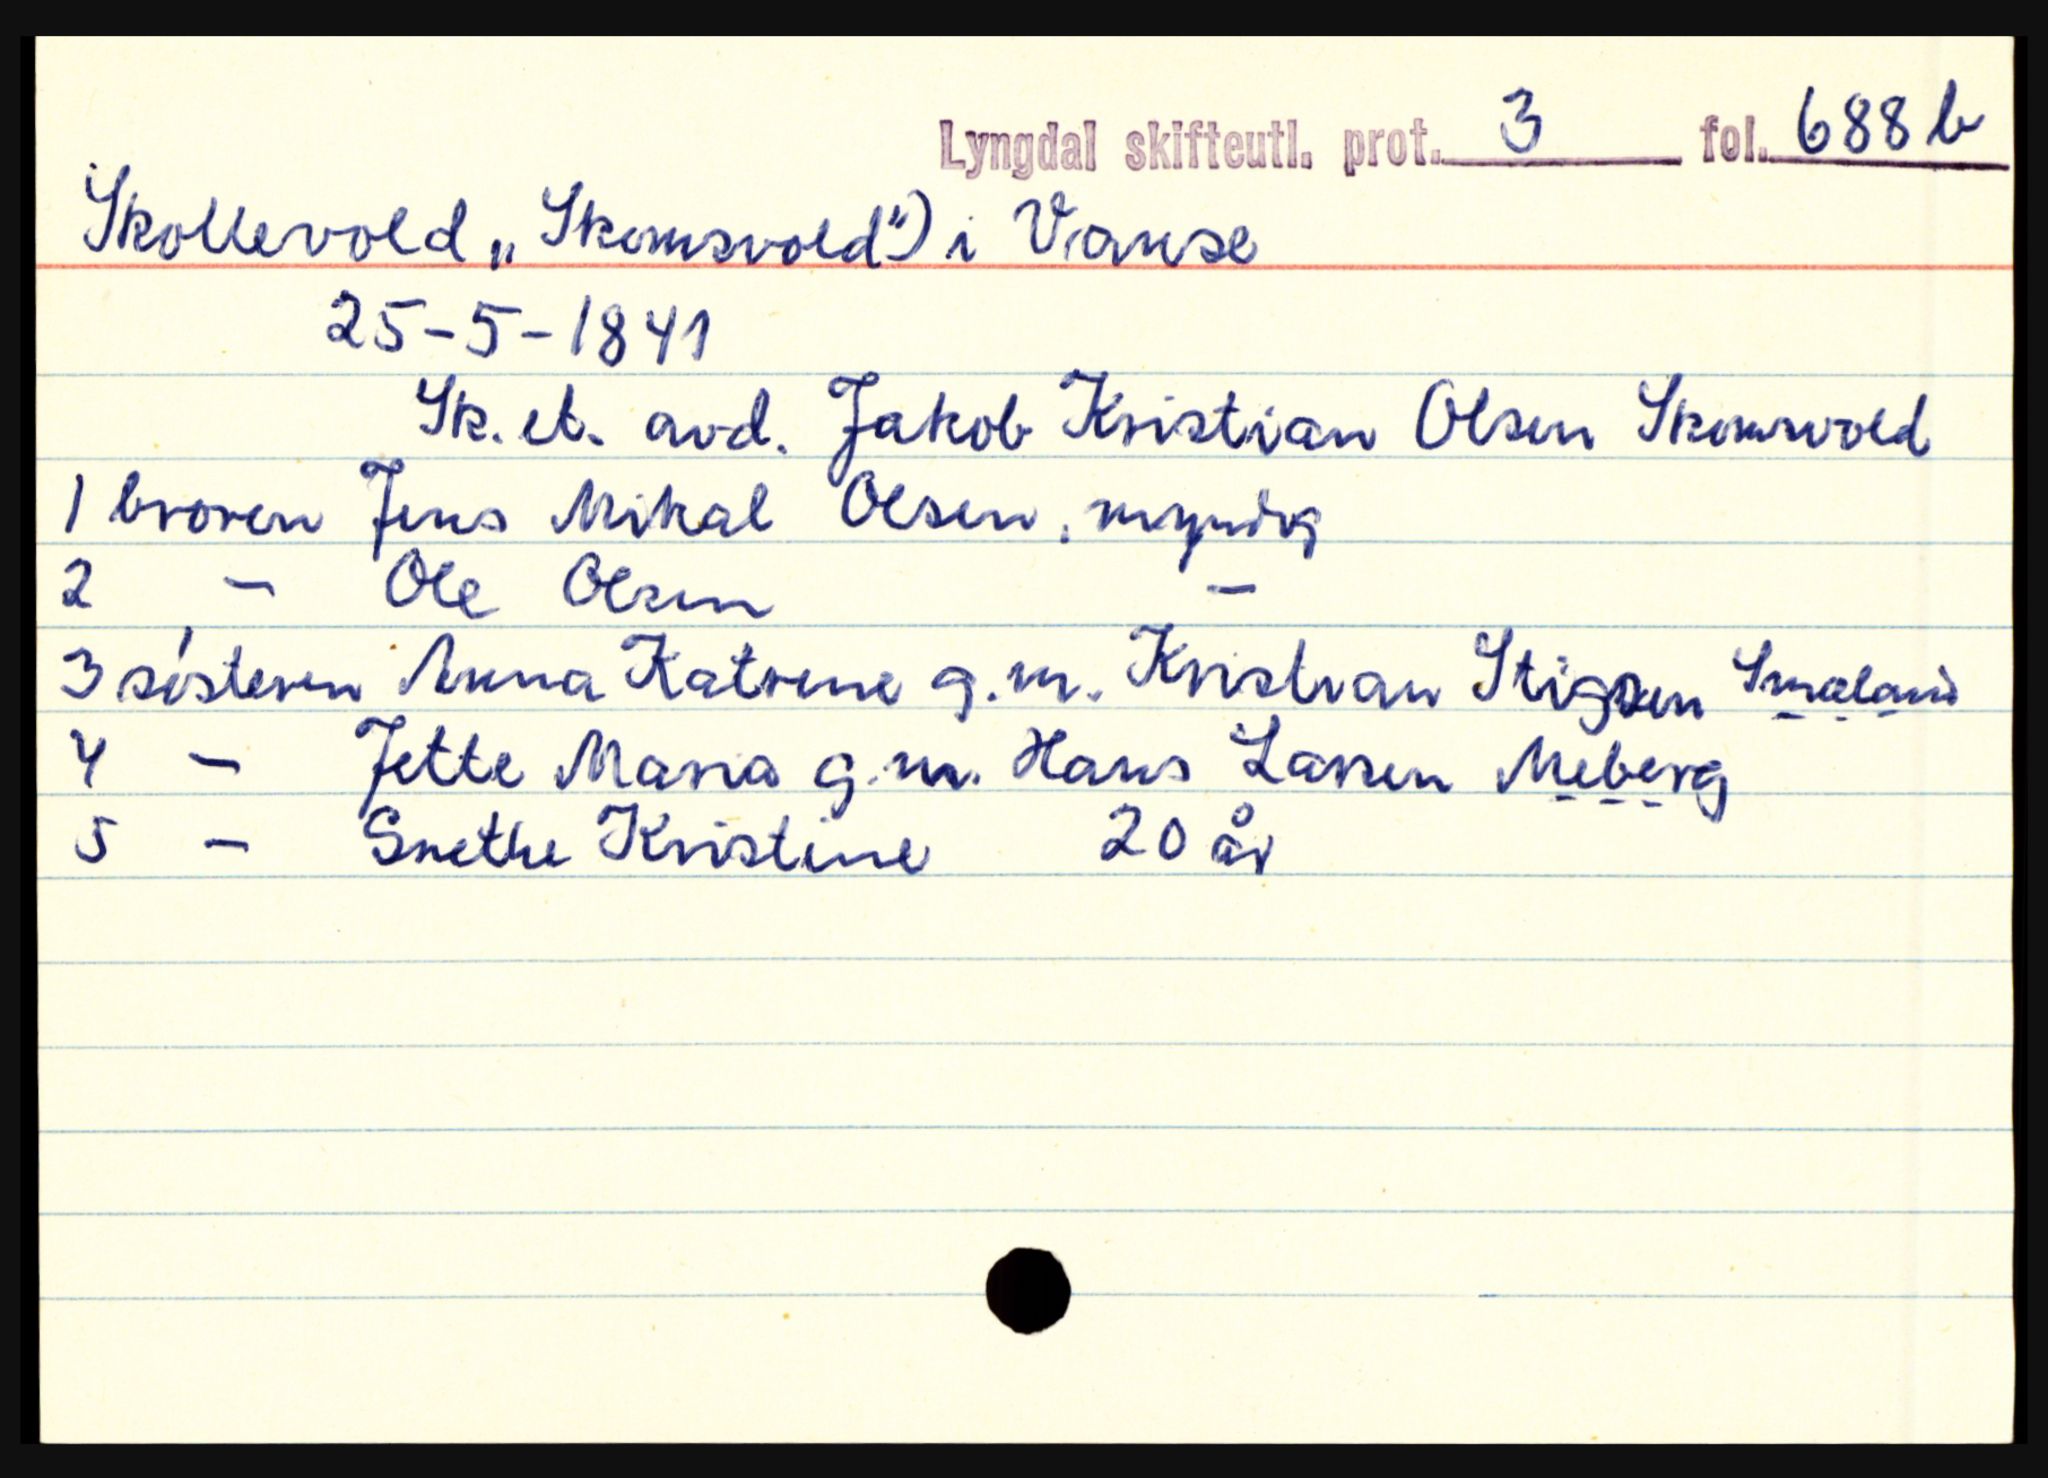 Lyngdal skifteutl. prot. 3 fol. 688 b
Skollevold „Skomsvold") i Vanse
25-5-1841
Sk. et. avd. Jakob Kristian Olsen Skomsvold
1 broren Jens Mikal Olsen, myndig
2 – Ole Olsen –
3 søsteren Anna Katrine g.m. Kristian Stigsen Småland
4 – Jette Maria g.m. Hans Larsen Meberg
5 – Grethe Kristine 20 år